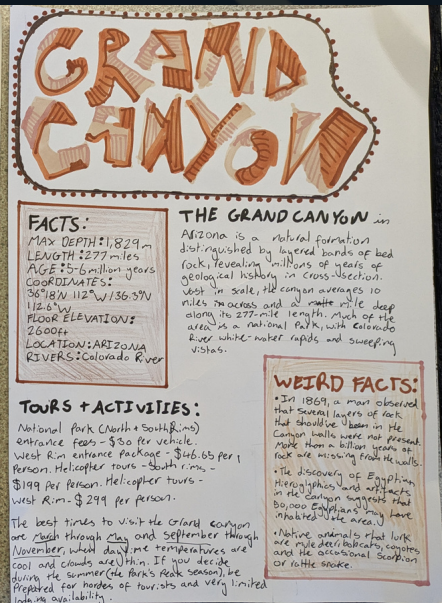 GRAND
CANYON
FACTS:
MAX DEPTH: 1,829m
LENGTH: 277 miles
AGE: 5-6 million years
COORDINATES:
36°18'N 112°W / 36.3°N
112.6°W
FLOOR ELEVATION:
2600ft
LOCATION: ARIZONA
RIVERS: Colorado River
THE GRAND CANYON in
Arizona is a natural formation
distinguished by layered bands of bed
rock, revealing millions of years of
geological history in cross-section.
Vast in scale, the canyon averages 10
miles across and a mile deep
along its 277-mile length. Much of the
area is a national park, with Colorado
River white-water rapids and sweeping
vistas.
TOURS + ACTIVITIES:
National park (North + South Rims)
entrance fees - $30 per vehicle.
West Rim entrance package - $46.65 per
person. Helicopter tours - South rims -
$199 per person. Helicopter tours -
West Rim - $299 per person.
The best times to visit the Grand Canyon
are March through May and September through
November, when daytime temperatures are
cool and crowds are thin. If you decide
during the summer (the park's peak season), be
prepared for hordes of tourists and very limited
lodging availability.
WEIRD FACTS:
• In 1869, a man observed
that several layers of rock
that should've been in the
Canyon walls were not present.
More than a billion years of
rock are missing from the walls.
• The discovery of Egyptian
Hieroglyphics and artifacts
in the canyon suggests that
50,000 Egyptians may have
inhabited the area.
• Native animals that lurk
are mule deer, bobcats, coyotes
and the occasional scorpion
or rattle snake.